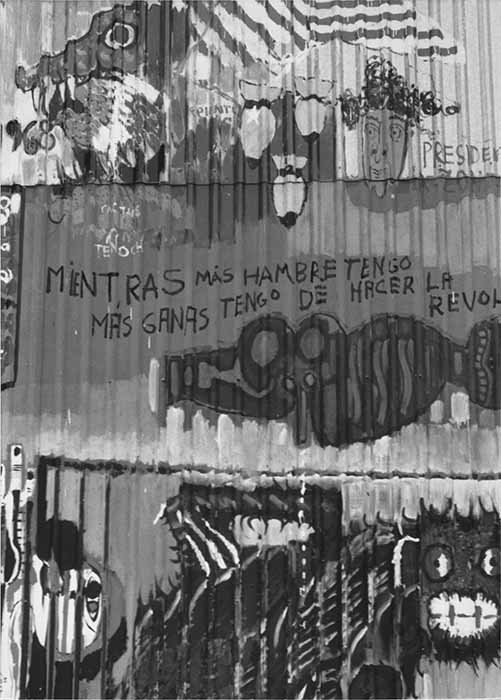 68
PRESIDEN
TENOCH
MIENTRAS MÁS HAMBRE TENGO
MÁS GANAS TENGO DE HACER LA
REVOL